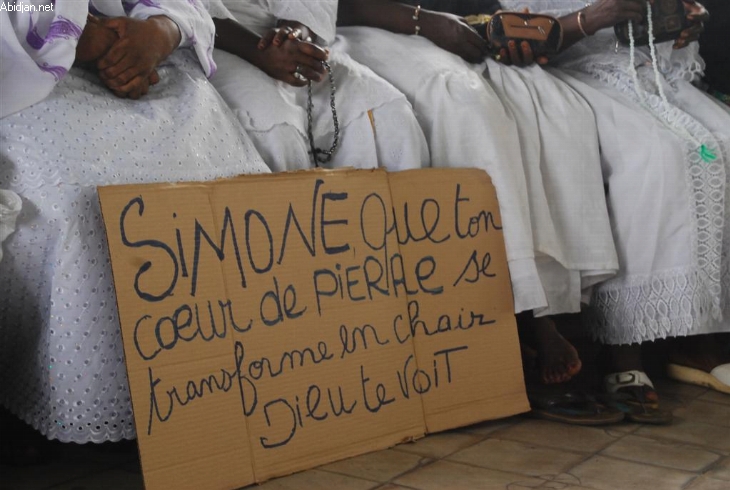 Abidjan.net
SiMONE, QUE ton
cœur de PiERRE se
transforme en chair
Dieu te VOIT